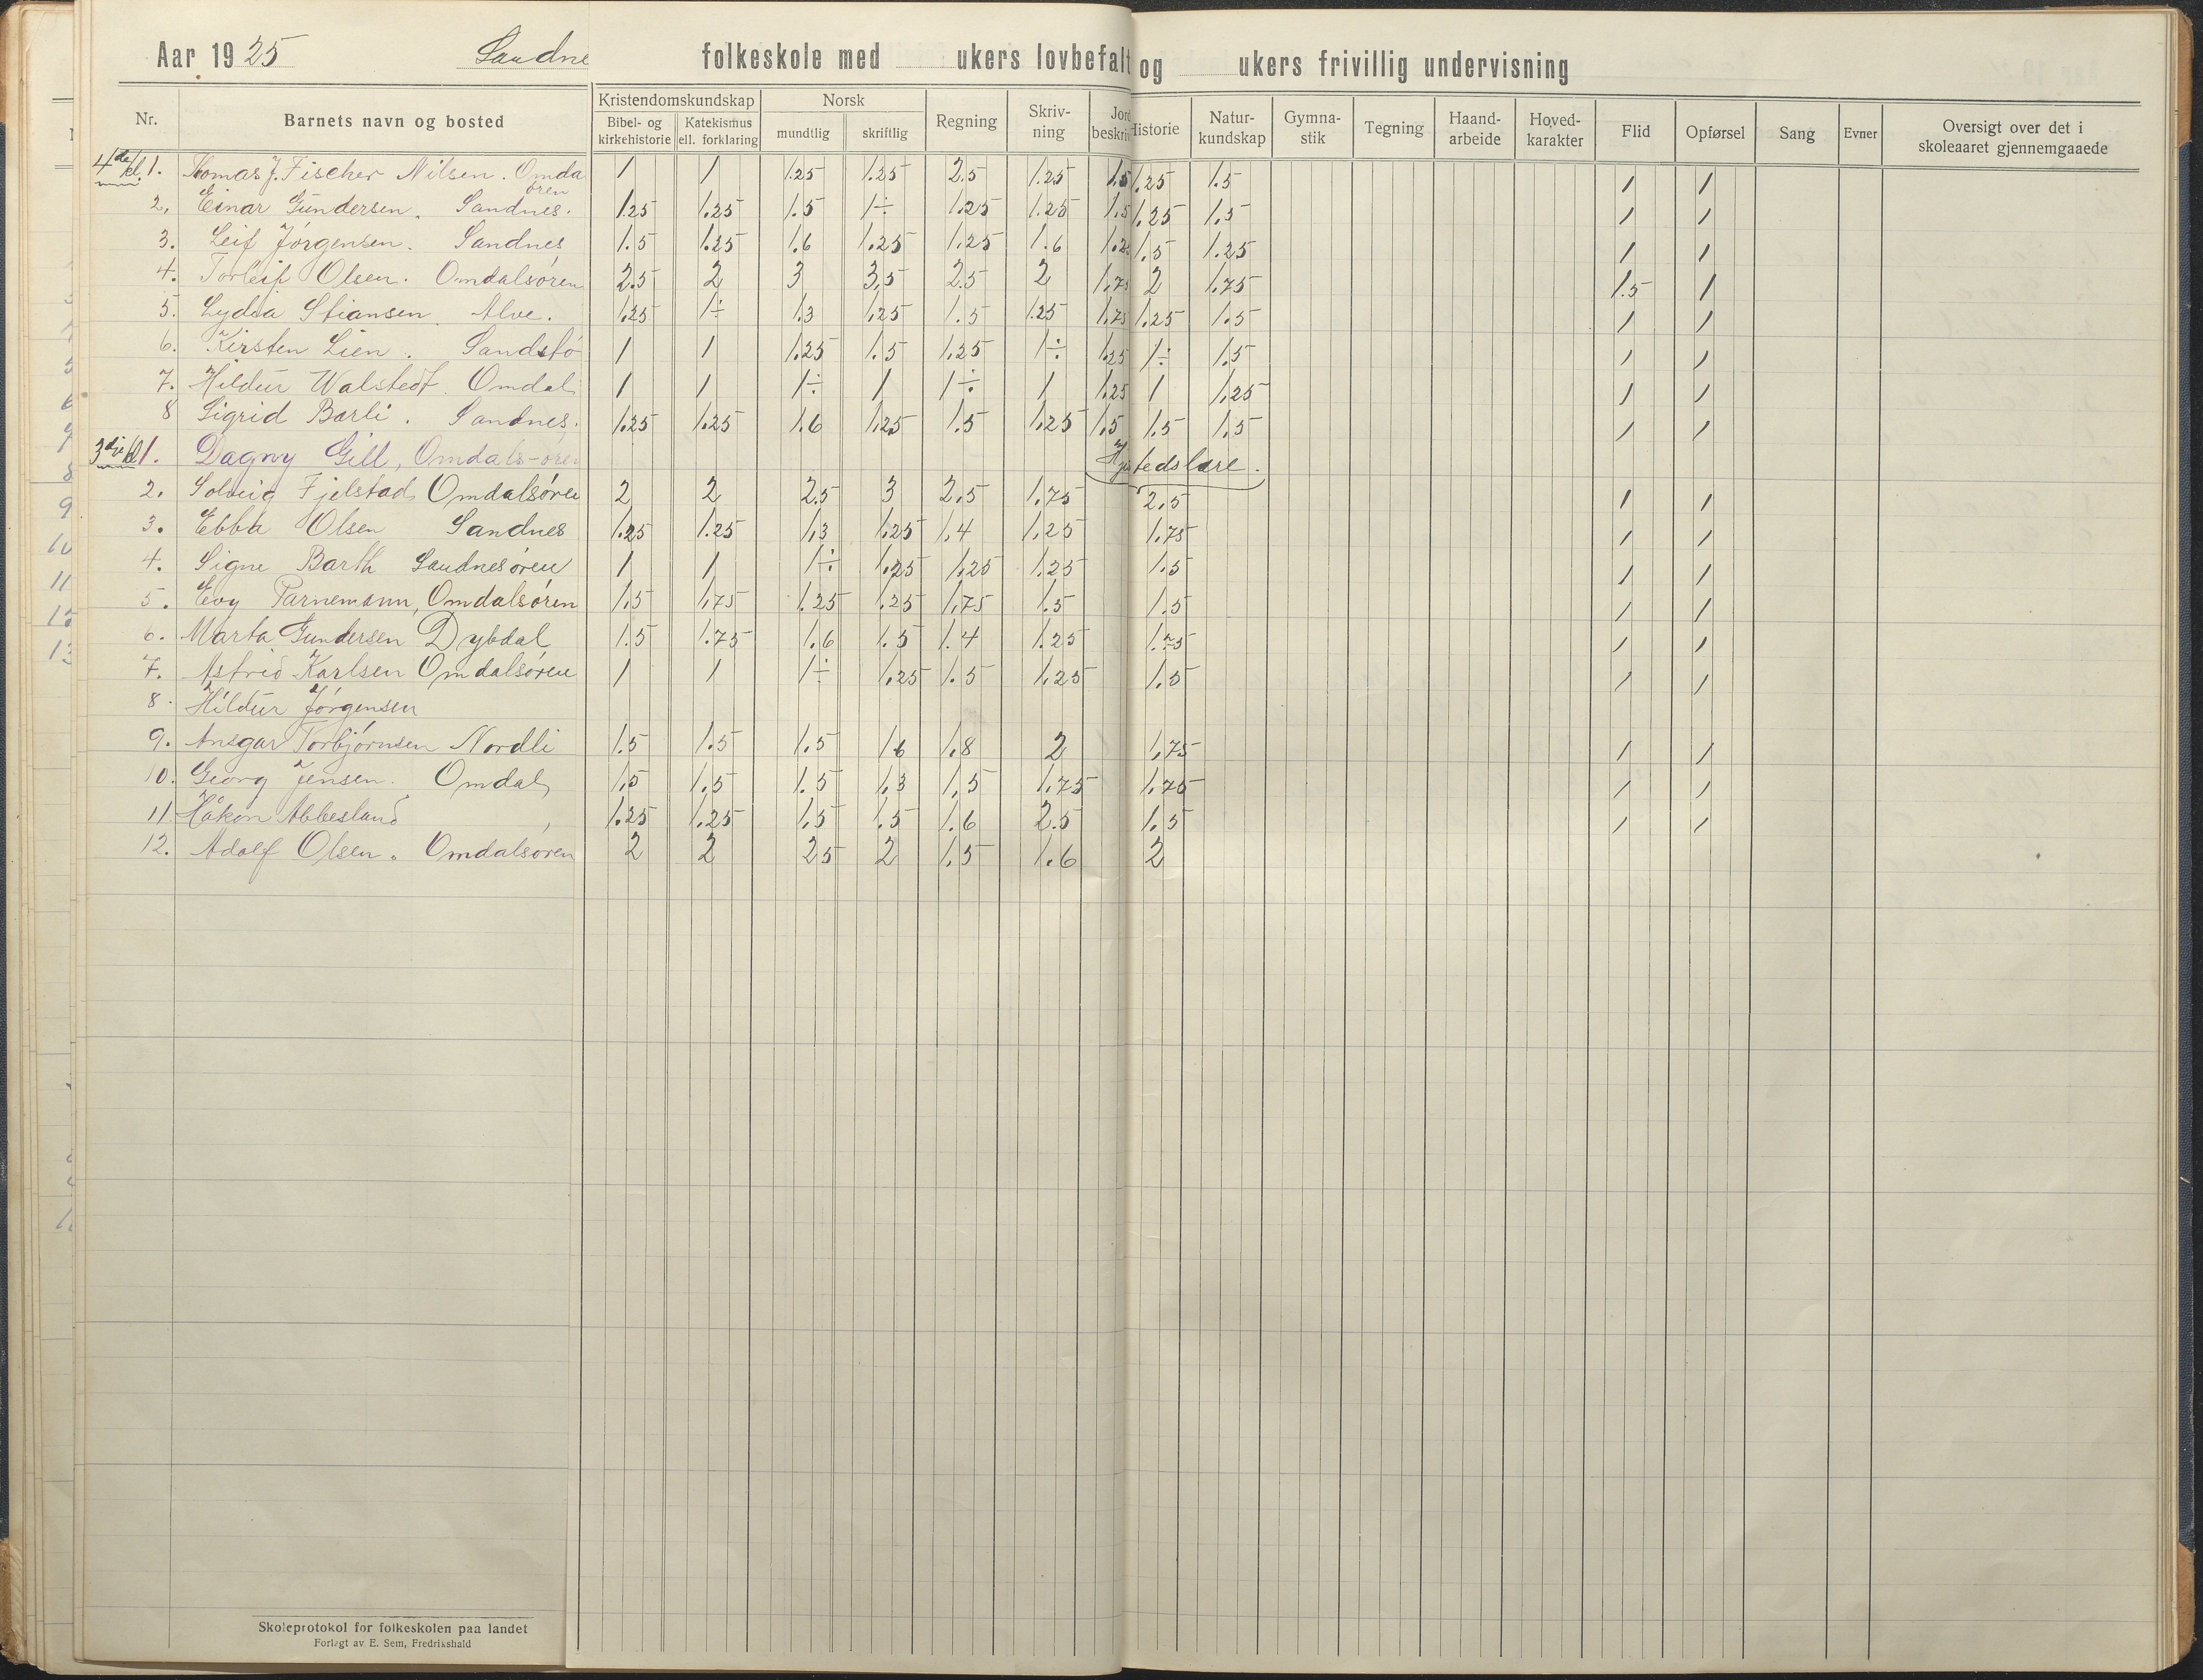 Aar 1925 Sandne folkeskole med ukers lovbefalt og ukers frivillig undervisning
Nr. Barnets navn og bosted Kristendomskundskap Bibel- og kirkehistorie Katekismus ell. forklaring Norsk mundtlig skriftlig Regning Skriv-ning Jord beskri Historie Natur-kundskap Gymna-stik Tegning Haand-arbeide Hoved-karakter Flid Opførsel Sang Evner Oversigt over det i skoleaaret gjennemgaaede
4de kl. 1. Thomas J. Fischer Nilsen. Omda 1 1 1.25 1.25 2.5 1.25 1.5 1.25 1.5 1 1
øren
2. Einar Gundersen. Sandnes. 1.25 1.25 1.5 1÷ 1.25 1.25 1.5 1.25 1.5 1 1
3. Leif Jørgensen. Sandnes 1.5 1.25 1.6 1.25 1.25 1.6 1.25 1.5 1.25 1 1
4. Torleif Olsen. Omdalsøren 2.5 2 3 3,5 2.5 2 1.75 2 1.75 1.5 1
5. Lydia Stiansen. Alve. 1.25 1÷ 1.3 1.25 1.5 1.25 1.75 1.25 1.5 1 1
6. Kirsten Lien. Sandstø 1 1 1.25 1.5 1.25 1÷ 1.25 1÷ 1.5 1 1
7. Hildur Walstedt. Omdal 1 1 1÷ 1 1÷ 1 1.25 1 1.25 1 1
8 Sigrid Barli. Sandnes. 1.25 1.25 1.6 1.25 1.5 1.25 1.5 1.5 1.5 1 1
3die kl 1. Dagny Gill, Omdals-øren Hjstedslære.
2. Solveig Fjelstad Omdalsøren 2 2 2.5 3 2.5 1.75 2.5 1 1
3. Ebba Olsen Sandnes 1.25 1.25 1,3 1.25 1.4 1.25 1.75 1 1
4. Signe Barth Sandnesøren 1 1 1÷ 1.25 1.25 1.25 1.5 1 1
5. Evy Parnemann, Omdalsøren 1.5 1.75 1.25 1.25 1.75 1.5 1.5 1 1
6. Marta Gundersen Dybdal 1.5 1.75 1.6 1.5 1.4 1.25 1.75 1 1
7. Astrid Karlsen Omdalsøren 1 1 1÷ 1.25 1.5 1.25 1.5 1 1
8. Hildur Jørgensen
9. Ansgar Torbjørnsen Nordli 1.5 1.5 1.5 1.6 1.8 2 1.75 1 1
10. Georg Jensen. Omdal 1.5 1.5 1.5 1,3 1.5 1.75 1.75 1 1
11. Håkon Abbesland 1.25 1.25 1.5 1.5 1.6 2.5 1.5 1 1
12. Adolf Olsen. Omdalsøren 2 2 2.5 2 1.5 1.6 2
Skoleprotokol for folkeskolen paa landet
Forlagt av E. Sem, Fredrikshald